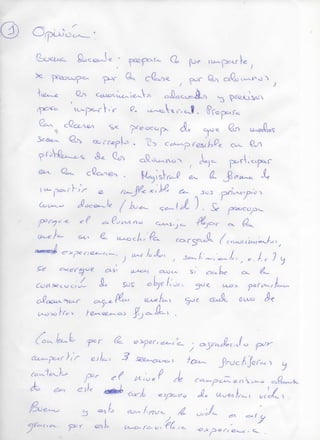 ① Opinión.
Buena Docente: prepara lo que imparte,
se preocupa por la clase, por los alumnos,
tiene los conocimientos adecuados y precisos
para impartir el material. Prepara
las clases se preocupa de que los
sean los correctos. Es comprensible con los
problemas de los alumnos, deja participar
en las clases. Magistral en la forma de
impartir e inflexible en sus principios
como docente (buen ). Se preocupa
porque el alumno consiga llegar a la
meta con la mochila cargada (conocimientos,
experiencias, métodos, sentimientos, e.t.c) y
se energue así mas aun si cabe a la
consecución de sus objetivos que nos permitan
alcanzar aquellas metas que cada uno de
nosotros tenemos fijadas.
Contento por la experiencia; agradecido por
compartir estas 3 semanas tan fructíferas y
contento por el nivel de compañerismo
en este corto espacio de nuestras vidas.
Bueno y esto continua, la vida es así y
gracias por esta maravillosa experiencia.